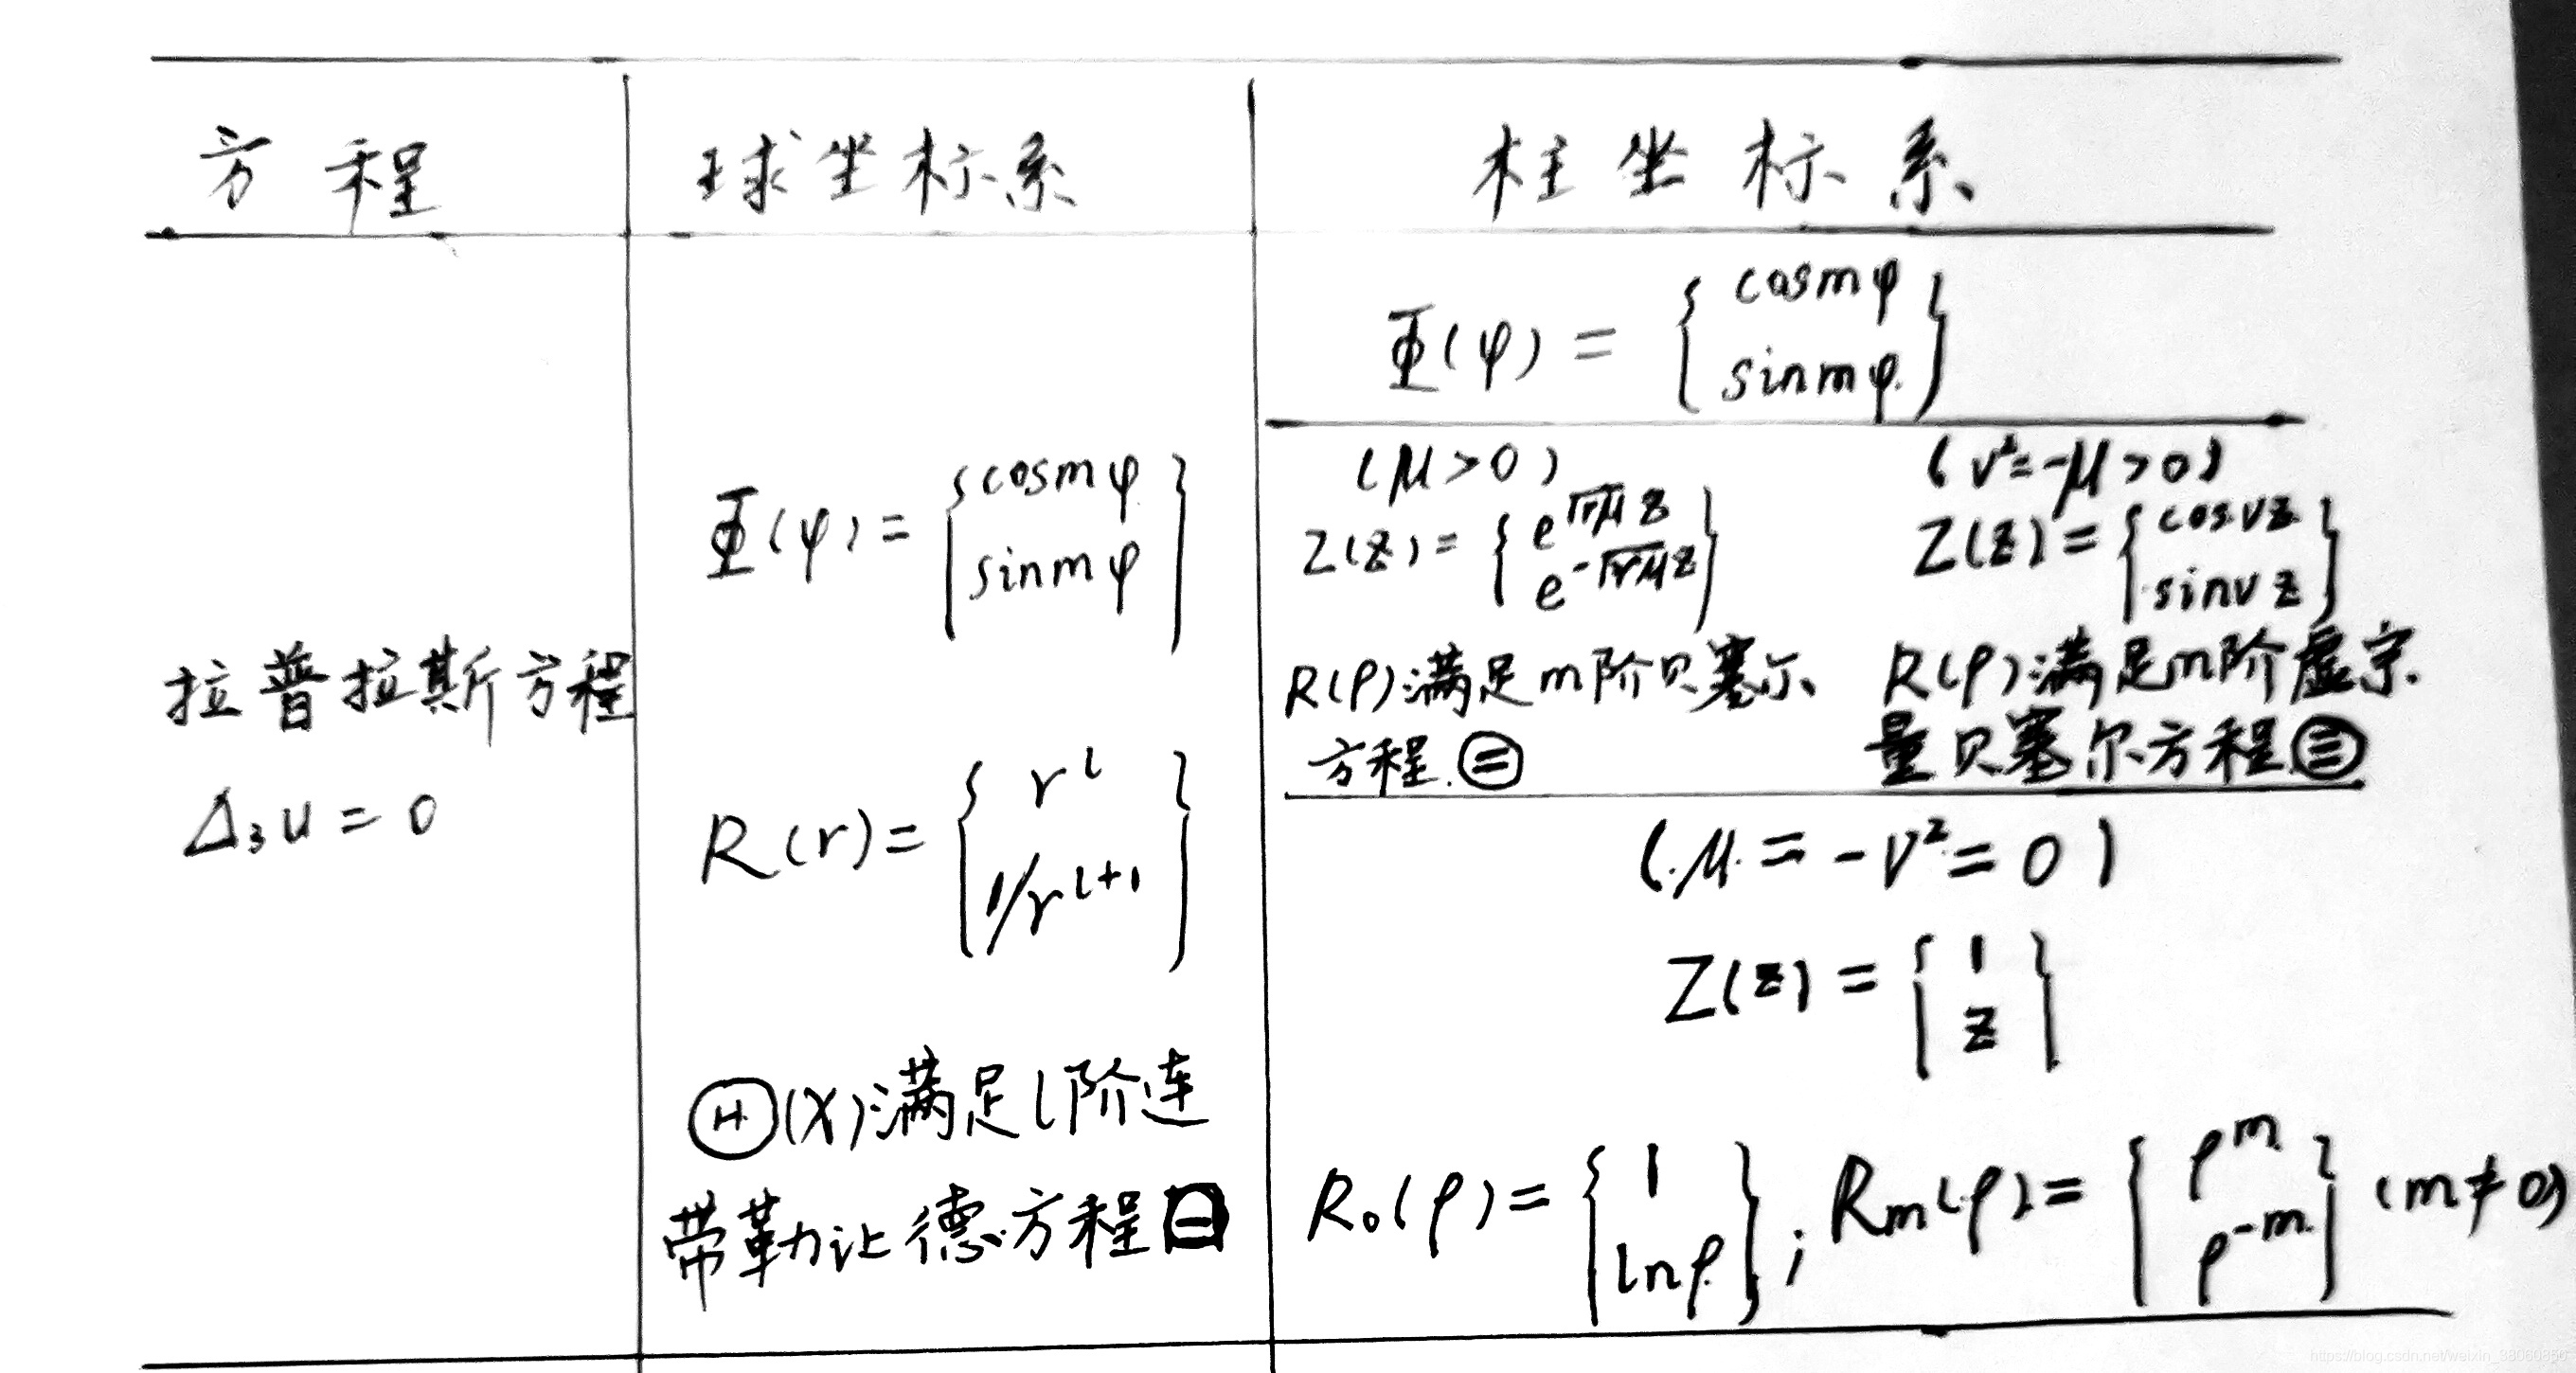 方程 球坐标系 柱坐标系
拉普拉斯方程
Δ₃u = 0
Φ(φ) = { cosmφ
sinmφ }
R(r) = { r^l
1/r^{l+1} }
Θ(x)满足l阶连
带勒让德方程㊀
Φ(φ) = { cosmφ
sinmφ }
(μ>0)
Z(z) = { e^{√μ z}
e^{-√μ z} }
R(ρ)满足m阶贝塞尔
方程.㊁
(ν²=-μ>0)
Z(z) = { cosνz
sinνz }
R(ρ)满足m阶虚宗
量贝塞尔方程㊂
(μ = -ν² = 0)
Z(z) = { 1
z }
R₀(ρ) = { 1
lnρ } ; R_m(ρ) = { ρ^m
ρ^{-m} } (m≠0)